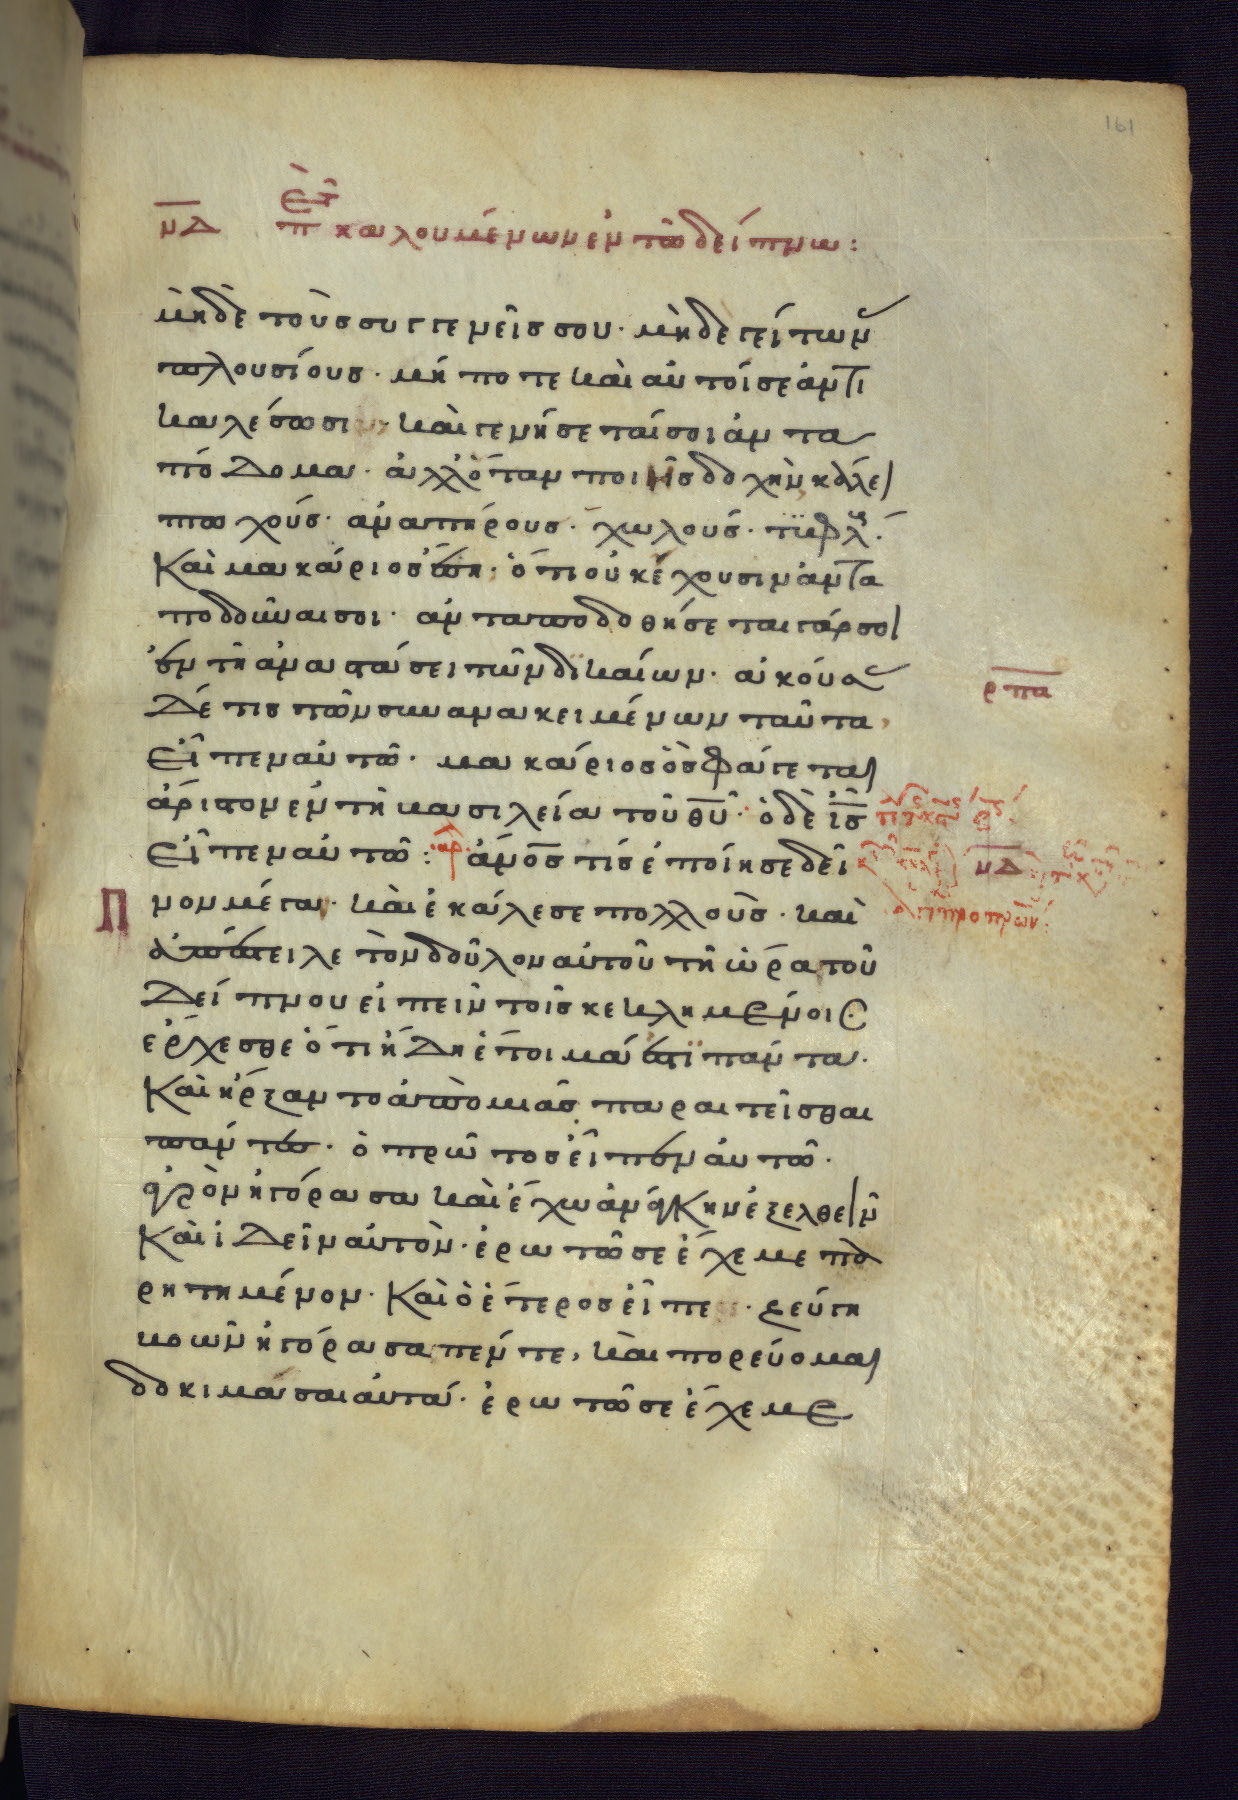 161
μδ π καλουμένων ἐν τῶ δείπνω:
μὴδὲ τοὺς συγγενεῖς σου· μὴδὲ γείτων
πλουσίους· μή ποτε καὶ αὐτοί σε ἀντι
καλέσωσι καὶ γενήσεταί σοι ἀντα
πόδομα· ἀλλ ὅταν ποιῆς δοχὴν κάλει
πτωχούς· ἀναπήρους· χωλούς· τυφλ.
Καὶ μακάριος ἔση· ὅτι οὐκ ἔχουσιν ἀντα
ποδοῦναι σοι· ἀνταποδοθήσεται γάρ σοι
ἐν τῆ ἀναστάσει τῶν δικαίων· ἀκούσας
ρπα
Δέ τις τῶν συνανακειμένων ταῦτα,
Εἶπεν αὐτῶ· μακάριος ὃς φάγεται
ἄριστον ἐν τῆ βασιλεία τοῦ θυ· ὁ δὲ ις
Εἶπεν αὐτῶ: ἀνος τίς ἐποίησε δεῖ
μδ
πνον μέγα· καὶ ἐκάλεσε πολλοὺς· καὶ
ἀπέστειλε τὸν δοῦλον αὐτοῦ τῆ ὥρα τοῦ
Δείπνου εἰπεῖν τοῖς κεκλημένοις
ἔρχεσθε ὅτι ἤδη ἕτοιμά ἐστι πάντα.
Καὶ ἤρξαντο ἀπὸ μιᾶς παραιτεῖσθαι
πάντες· ὁ πρῶτος εἶπεν αὐτῶ·
ἀγρὸν ἠγόρασα καὶ ἔχω ἀνάγκην ἐξελθεῖν
Καὶ ἰδεῖν αὐτὸν· ἐρωτῶ σε ἔχε με πα
ρητημένον· Καὶ ὁ ἕτερος εἶπε· ζεύγη
βοῶν ἠγόρασα πέντε, καὶ πορεύομαι
δοκιμάσαι αὐτά· ἐρωτῶ σε ἔχε με